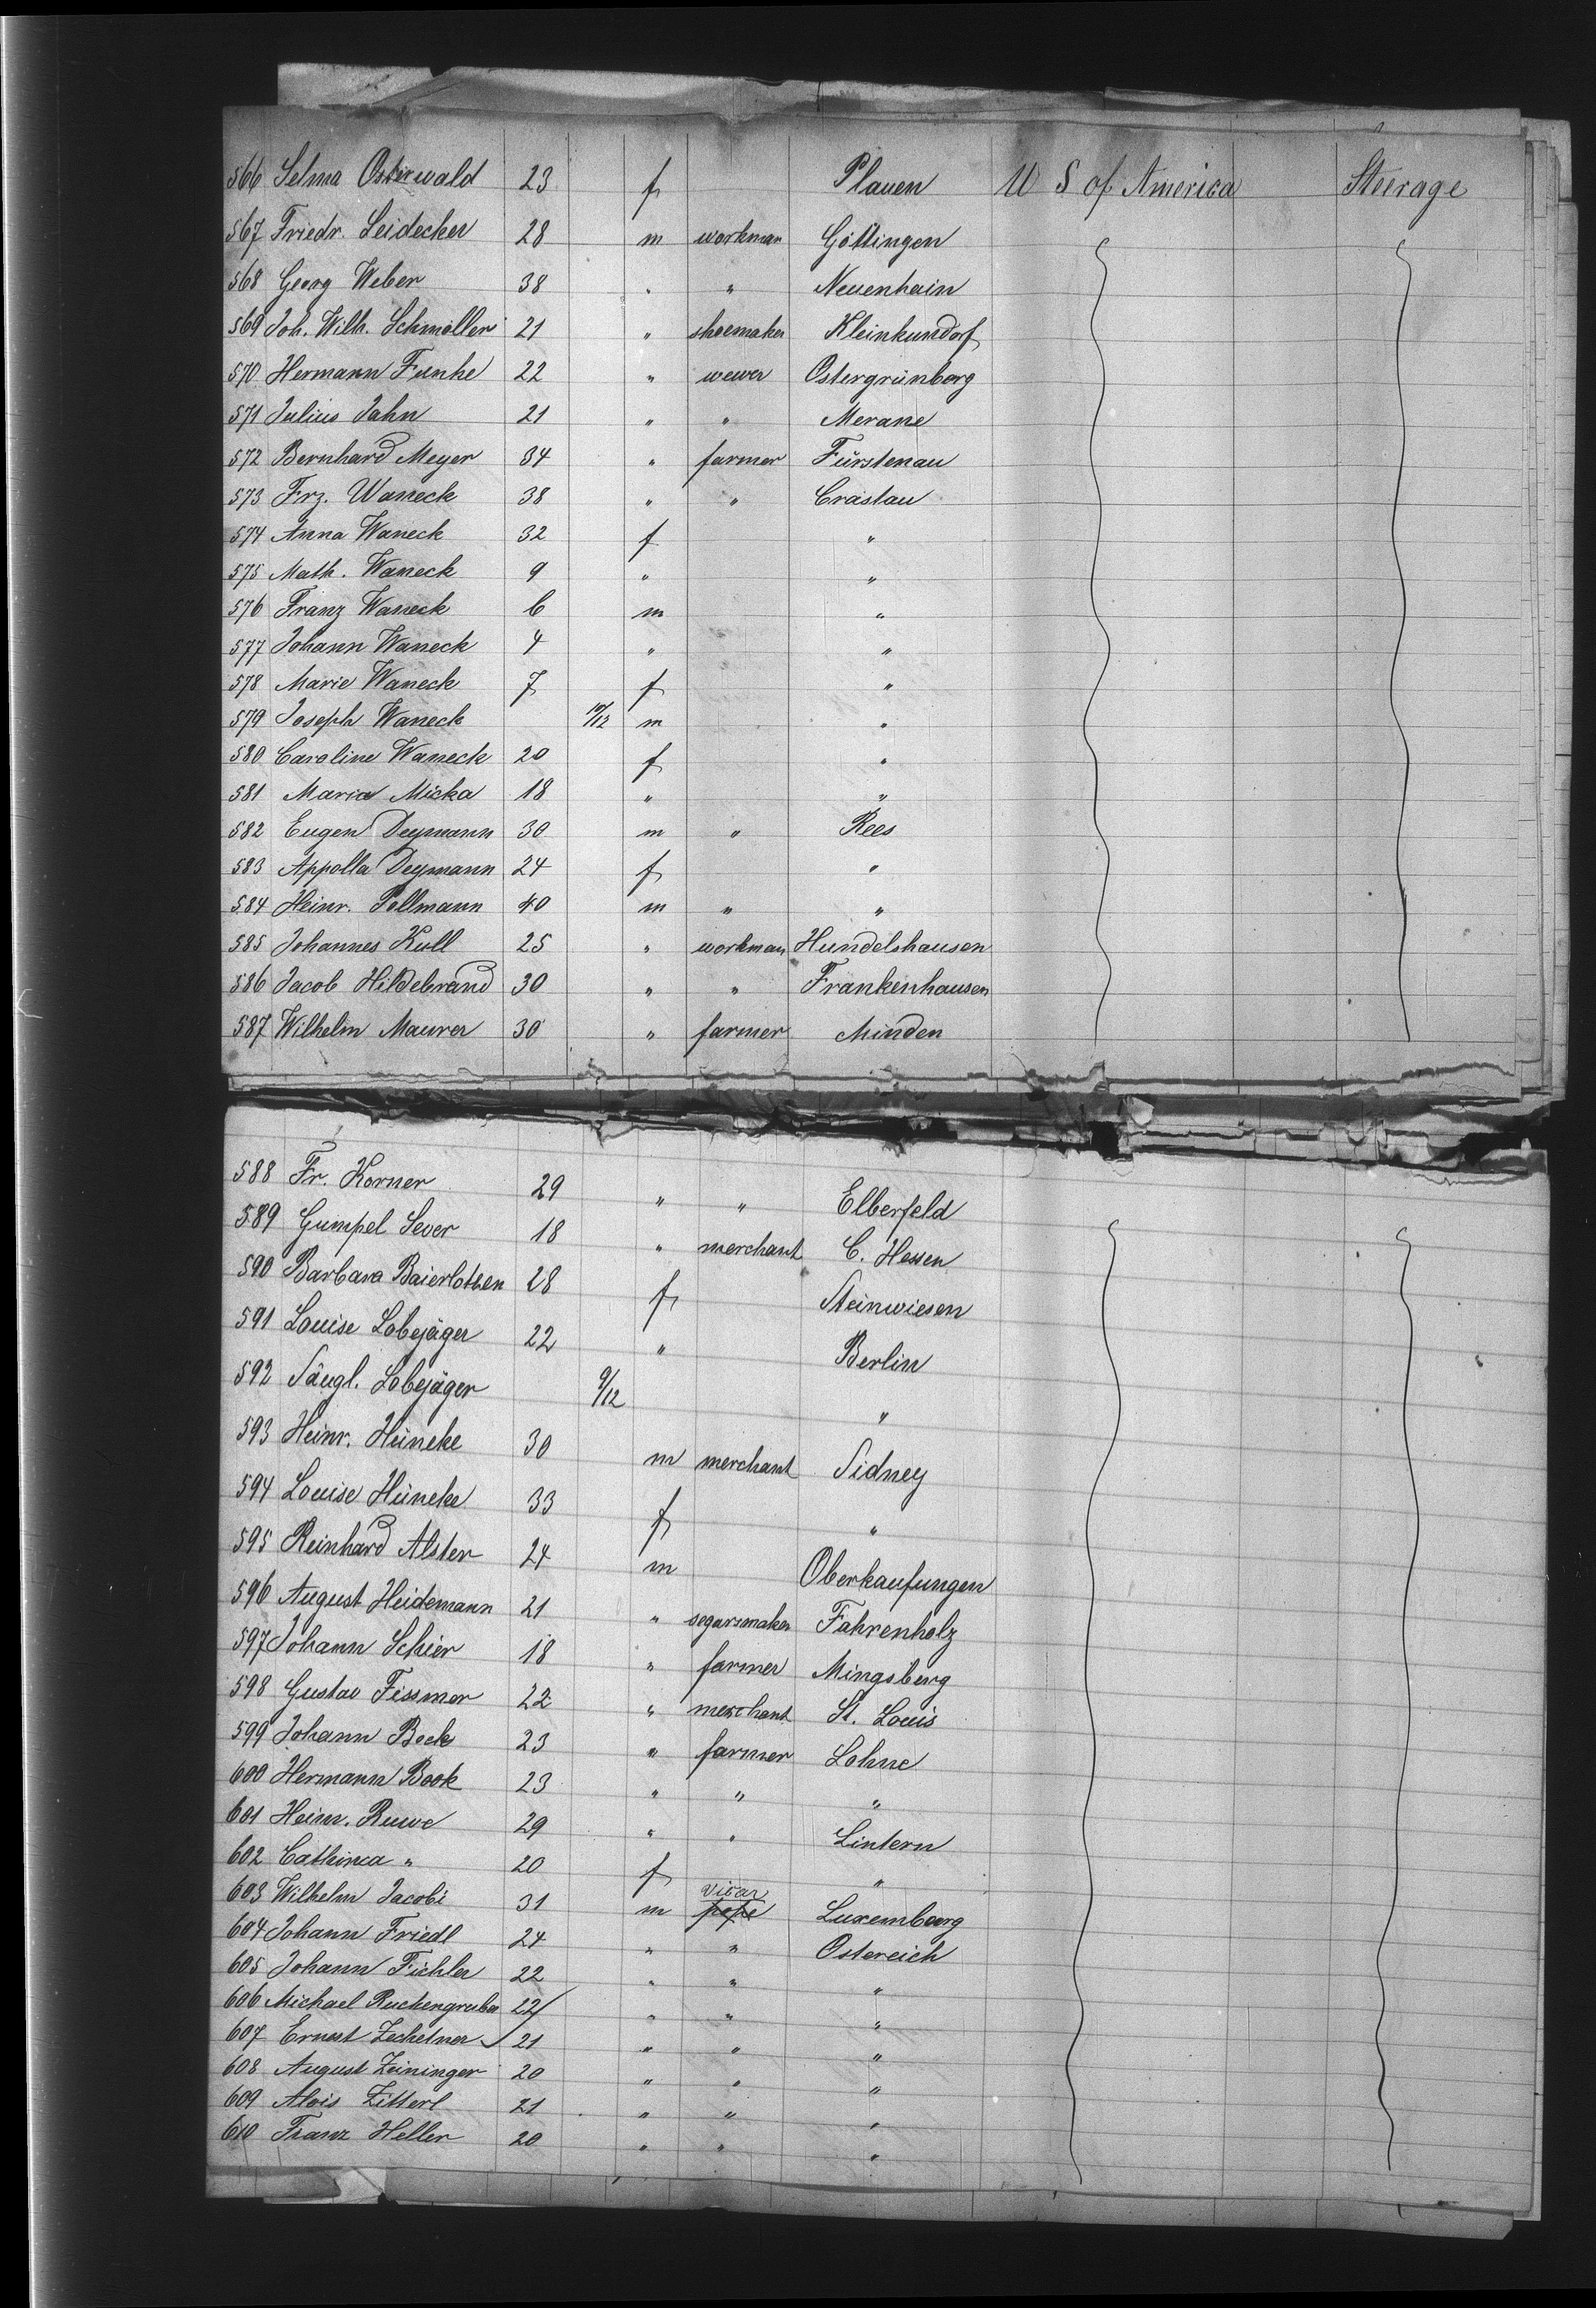 566 Selma Osterwald 23 f Plauen U S of America Steerage
567 Friedr. Leidecker 28 m workman Göttingen
568 Georg Weber 38 " " Neuenhain
569 Joh. Wilh. Schmöller 21 " shoemaker Kleinkundorf
570 Hermann Funke 22 " wewer Ostergrünberg
571 Julius Jahn 21 " " Merane
572 Bernhard Meyer 34 " farmer Fürstenau
573 Frz. Waneck 38 " " Crastau
574 Anna Waneck 32 f "
575 Math. Waneck 9 " "
576 Franz Waneck 6 m "
577 Johann Waneck 4 " "
578 Marie Waneck 7 f "
579 Joseph Waneck 10/12 m "
580 Caroline Waneck 20 f "
581 Maria Micka 18 " "
582 Eugen Deymann 30 m " Rees
583 Appolla Deymann 24 f "
584 Heinr. Pollmann 40 m " "
585 Johannes Kull 25 " workman Hundelshausen
586 Jacob Hildebrand 30 " " Frankenhausen
587 Wilhelm Maurer 30 " farmer Minden
588 Fr. Korner 29 " " Elberfeld
589 Gumpel Sever 18 " merchant C. Hessen
590 Barbara Baierlothen 28 f Steinwiesen
591 Louise Lobejäger 22 " Berlin
592 Säugl. Lobejäger 9/12 "
593 Heinr. Hüneke 30 m merchant Sidney
594 Louise Hüneke 33 f "
595 Reinhard Alster 24 m Oberkaufungen
596 August Heidemann 21 " segarsmaker Fahrenholz
597 Johann Schier 18 " farmer Mingsberg
598 Gustav Fissmer 22 " merchant St. Louis
599 Johann Bock 23 " farmer Lohne
600 Hermann Book 23 " " "
601 Heinr. Ruwe 29 " " Lintern
602 Cathinca " 20 f "
603 Wilhelm Jacobi 31 m pope vicar Luxemburg
604 Johann Friedl 24 " " Ostereich
605 Johann Fichler 22 " " "
606 Michael Ruckengruber 22 " " "
607 Ernest Zechetner 21 " " "
608 August Zeininger 20 " " "
609 Alois Zitterl 21 " " "
610 Franz Heller 20 " " "